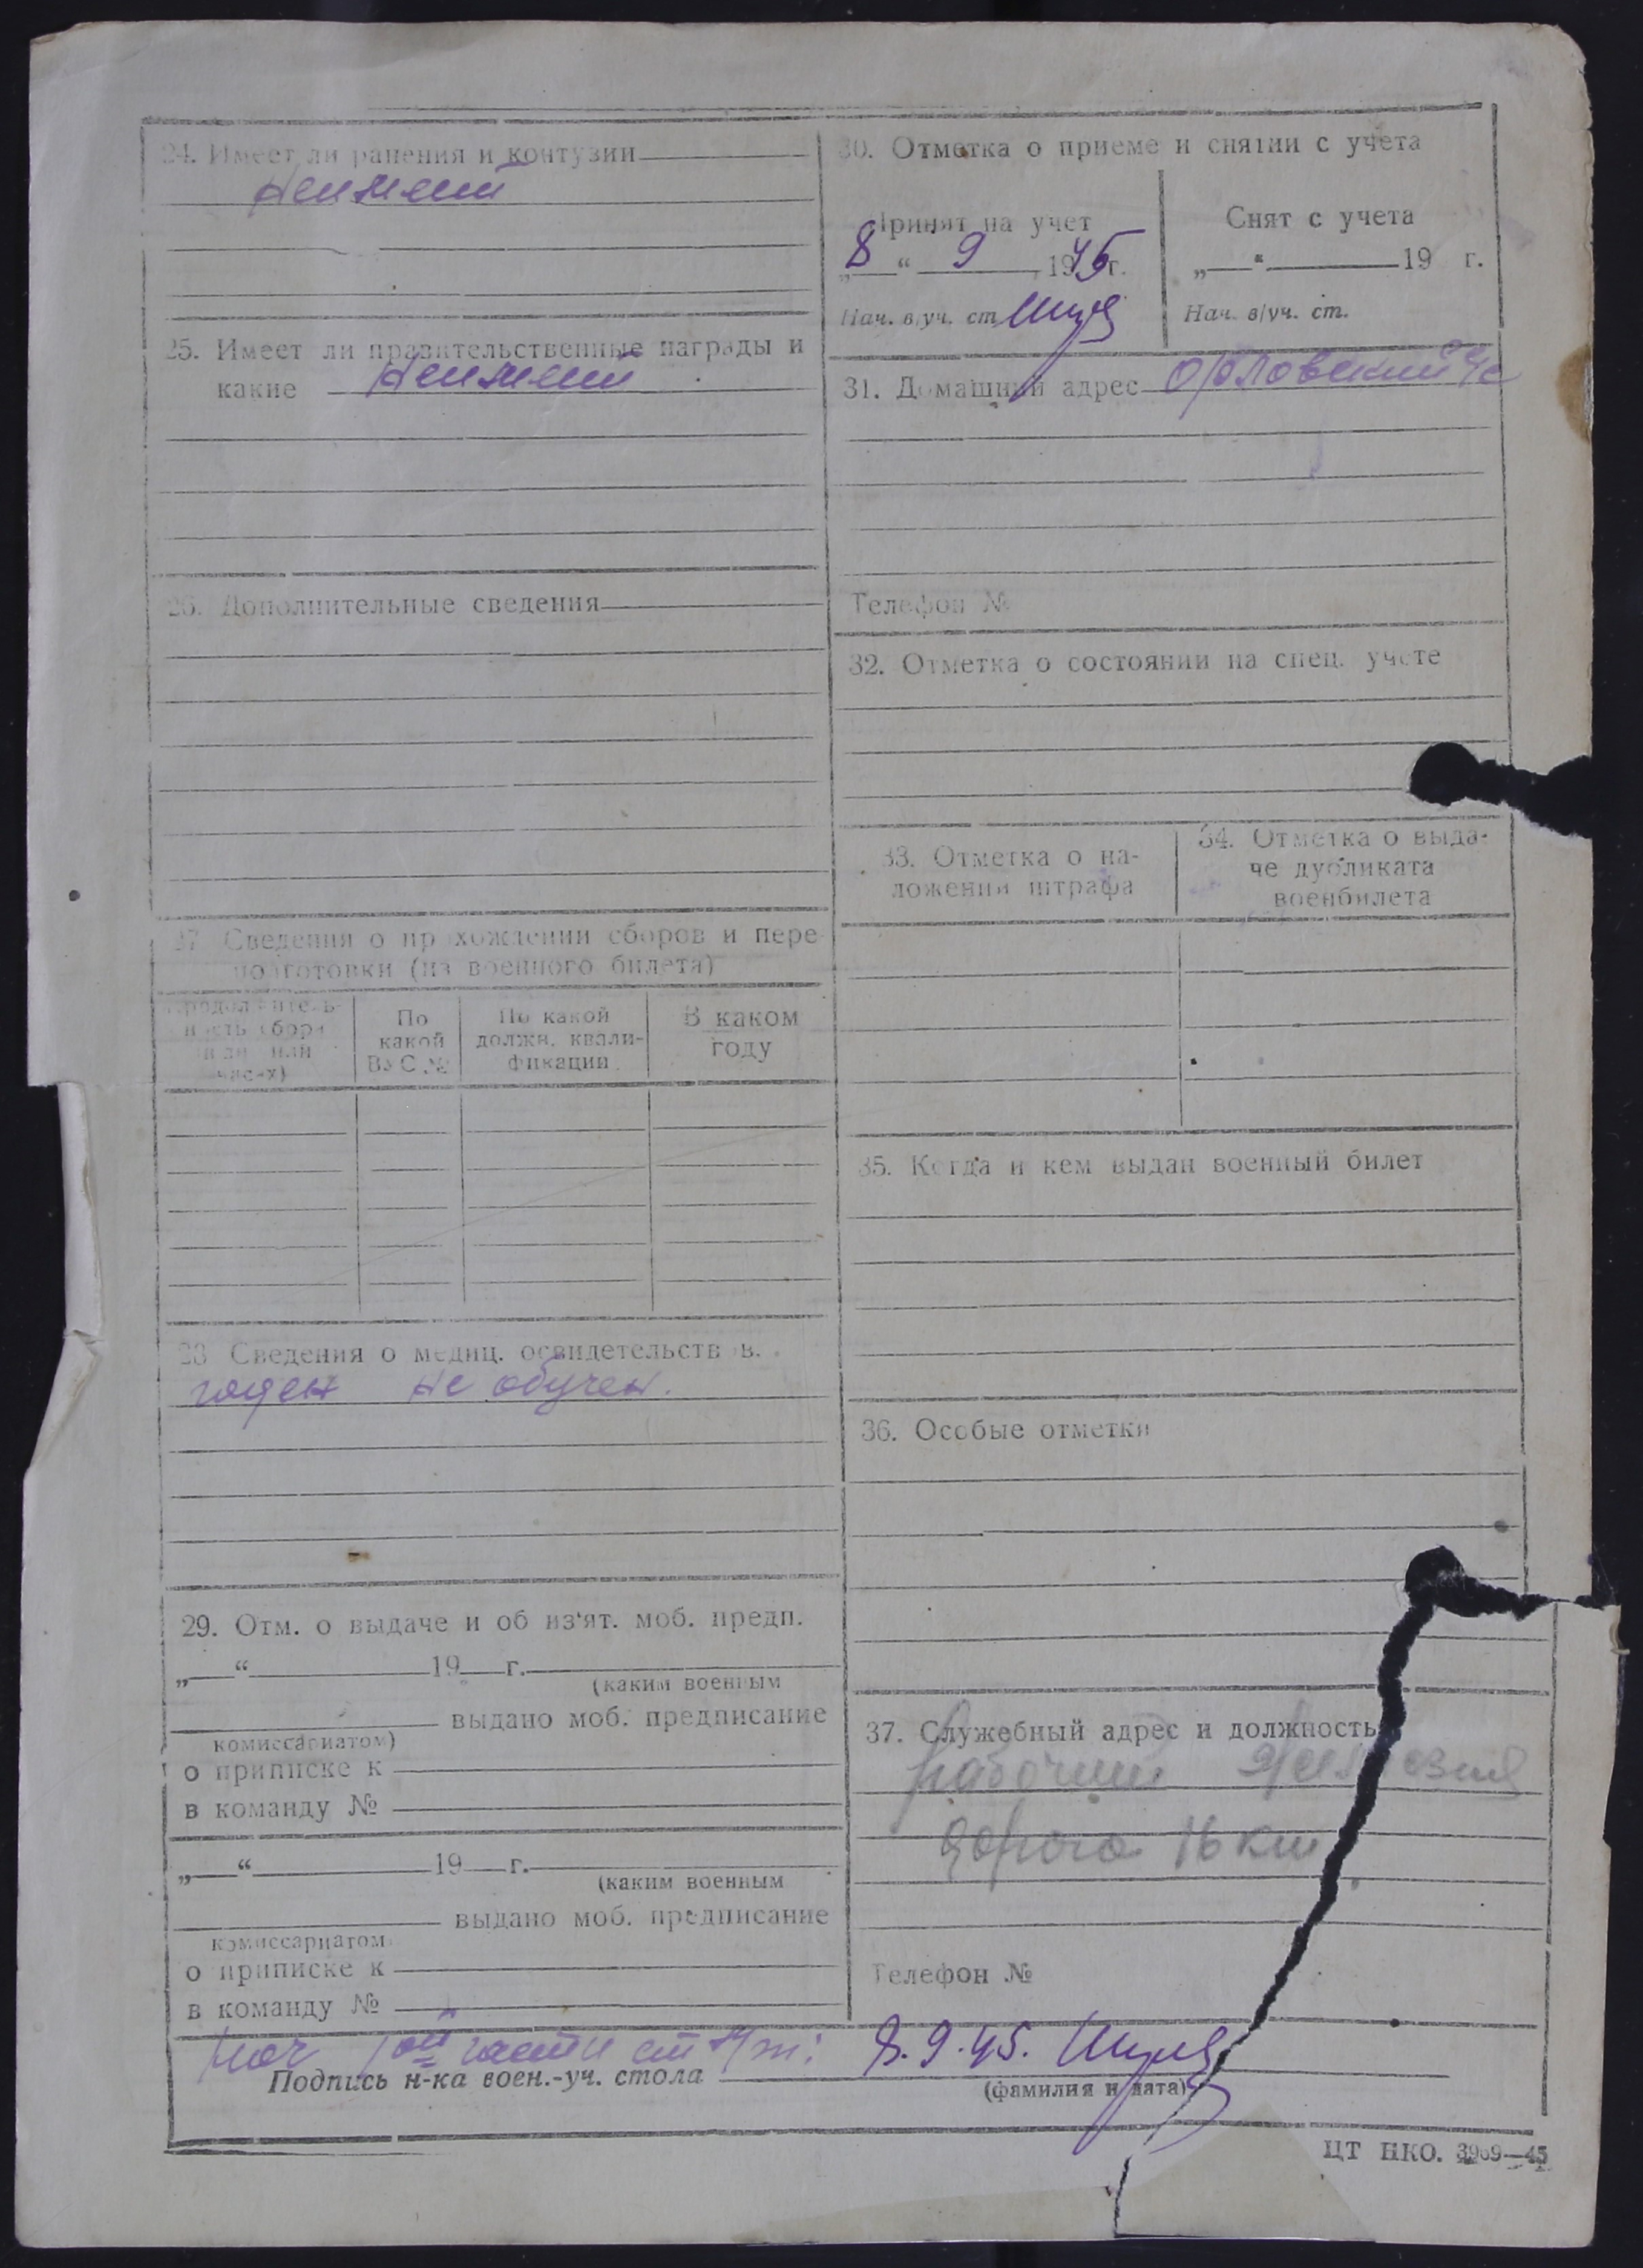 24. Имеет ли ранения и контузии
Неимеет
25. Имеет ли правительственные награды и
какие Неимеет
26. Дополнительные сведения
27. Сведения о прохождении сборов и пере-
подготовки (из военного билета)
Продолжитель-
ность сбора
(в дн. или
часах)
По
какой
ВУС №
По какой
должн. квали-
фикации
В каком
году
28. Сведения о медиц. освидетельствов.
годен не обучен.
29. Отм. о выдаче и об из'ят. моб. предп.
„ “ 19 г.
(каким военным
выдано моб. предписание
комиссариатом)
о приписке к
в команду №
„ “ 19 г.
(каким военным
выдано моб. предписание
комиссариатом
о приписке к
в команду №
30. Отметка о приеме и снятии с учета
Принят на учет
„8“ 9 1945 г.
Нач. в/уч. ст.
Снят с учета
„ “ 19 г.
Нач. в/уч. ст.
31. Домашний адрес Орловский
Телефон №
32. Отметка о состоянии на спец. учете
33. Отметка о на-
ложении штрафа
34. Отметка о выда-
че дубликата
военбилета
35. Когда и кем выдан военный билет
36. Особые отметки
37. Служебный адрес и должность
рабочий
дорога 16 км
Телефон №
Нач части 8.9.45.
Подпись н-ка воен.-уч. стола
(фамилия и дата)
ЦТ НКО. 3969—45